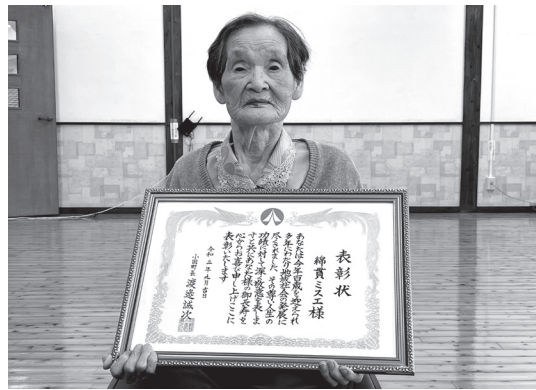 表彰状
綿貫ミスエ様
あなたは今年百歳を迎えられ
多年にわたり地域社会の発展に
尽くされました その尊い人生の
功績に対して深く敬意を表しま
すと共にあなた様の御長寿を
心からお喜び申し上げここに
表彰いたします
令和三年九月吉日
小国町長 渡邉誠次